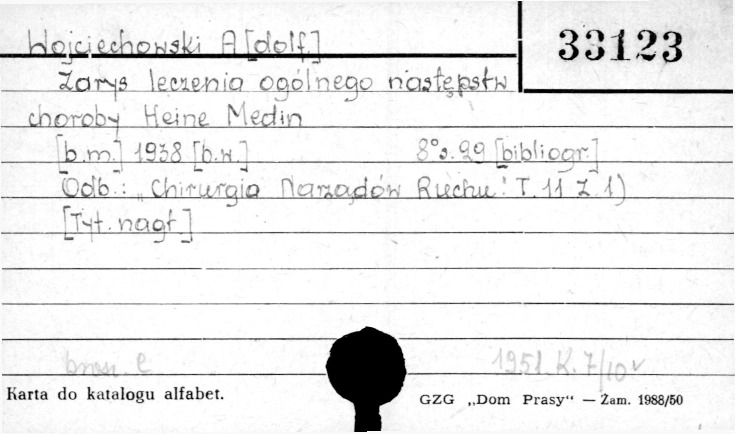 Wojciechowski A[dolf.]
33123
Zarys leczenia ogólnego następstw
choroby Heine Medin
[b.m.] 1938 [b.w.] 8°s. 29 [bibliogr.]
Odb.: „Chirurgia Narządów Ruchu" T. 11 Z. 1)
[Tyt. nagł.]
brosz. e 1951. K. 7/10
Karta do katalogu alfabet.
GZG „Dom Prasy“ — Zam. 1988/50